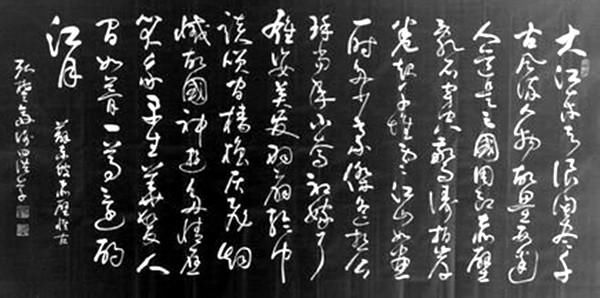 大江東去浪淘盡千
古風流人物故壘西邊
人道是三國周郎赤壁
亂石穿空驚濤拍岸
卷起千堆雪江山如畫
一時多少豪傑遙想公
瑾當年小喬初嫁了
雄姿英發羽扇綸巾
談笑間檣櫓灰飛煙
滅故國神遊多情應
笑我早生華髮人
間如夢一尊還酹
江月
蘇東坡赤壁懷古